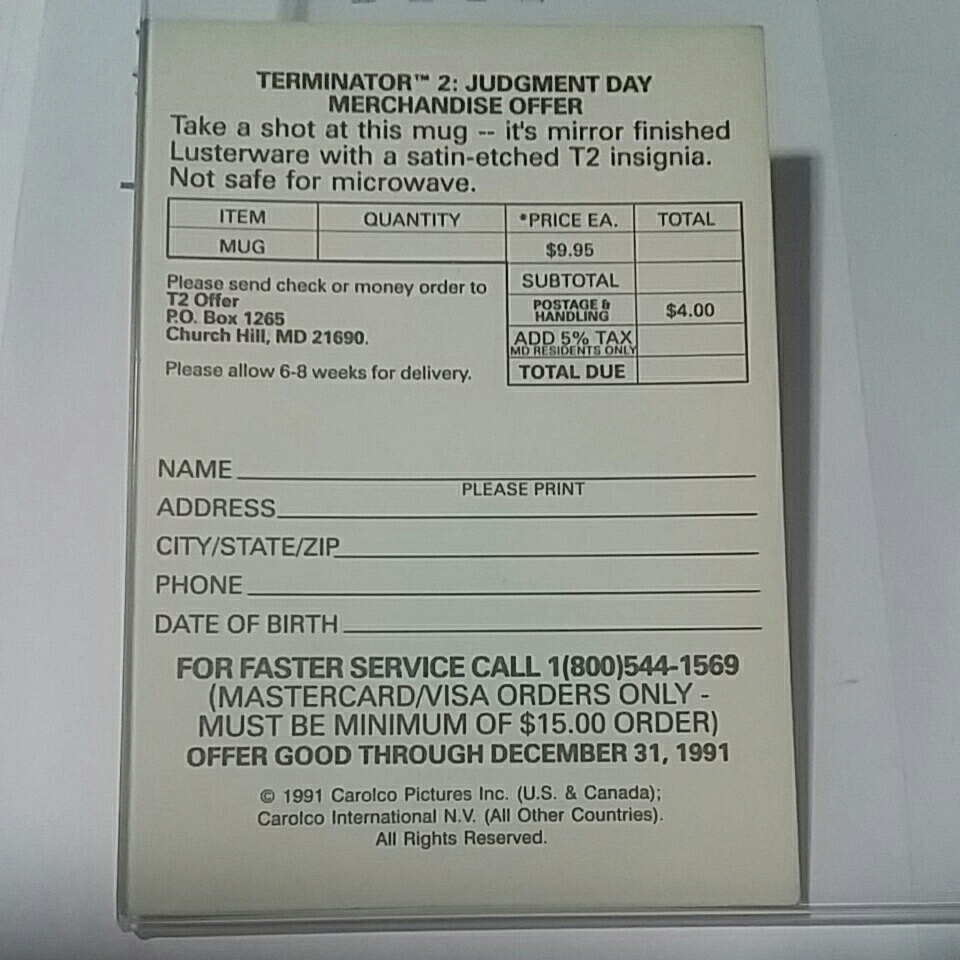 TERMINATOR™ 2: JUDGMENT DAY
MERCHANDISE OFFER
Take a shot at this mug -- it's mirror finished
Lusterware with a satin-etched T2 insignia.
Not safe for microwave.
ITEM QUANTITY *PRICE EA. TOTAL
MUG $9.95
SUBTOTAL
POSTAGE & HANDLING $4.00
ADD 5% TAX
MD RESIDENTS ONLY
TOTAL DUE
Please send check or money order to
T2 Offer
P.O. Box 1265
Church Hill, MD 21690.
Please allow 6-8 weeks for delivery.
NAME
PLEASE PRINT
ADDRESS
CITY/STATE/ZIP
PHONE
DATE OF BIRTH
FOR FASTER SERVICE CALL 1(800)544-1569
(MASTERCARD/VISA ORDERS ONLY -
MUST BE MINIMUM OF $15.00 ORDER)
OFFER GOOD THROUGH DECEMBER 31, 1991
© 1991 Carolco Pictures Inc. (U.S. & Canada);
Carolco International N.V. (All Other Countries).
All Rights Reserved.